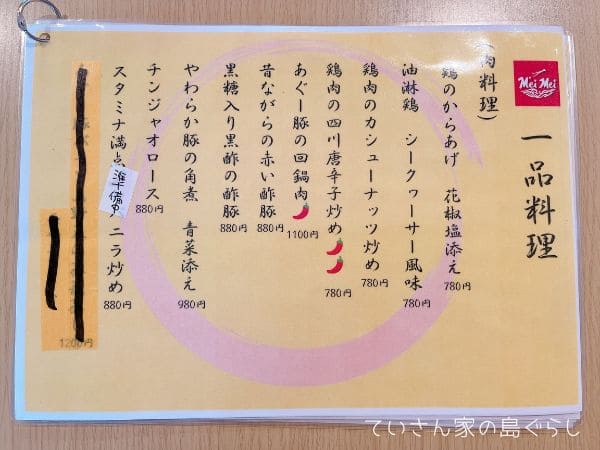 Mei Mei
一品料理
(肉料理)
鶏のからあげ 花椒塩添え 780円
油淋鶏 シークヮーサー風味 780円
鶏肉のカシューナッツ炒め 780円
鶏肉の四川唐辛子炒め 780円
あぐー豚の回鍋肉 1100円
昔ながらの赤い酢豚 880円
黒糖入り黒酢の酢豚 880円
やわらか豚の角煮 青菜添え 980円
チンジャオロース 880円
スタミナ満点 ニラ炒め 880円
準備中
1200円
ていさん家の島ぐらし